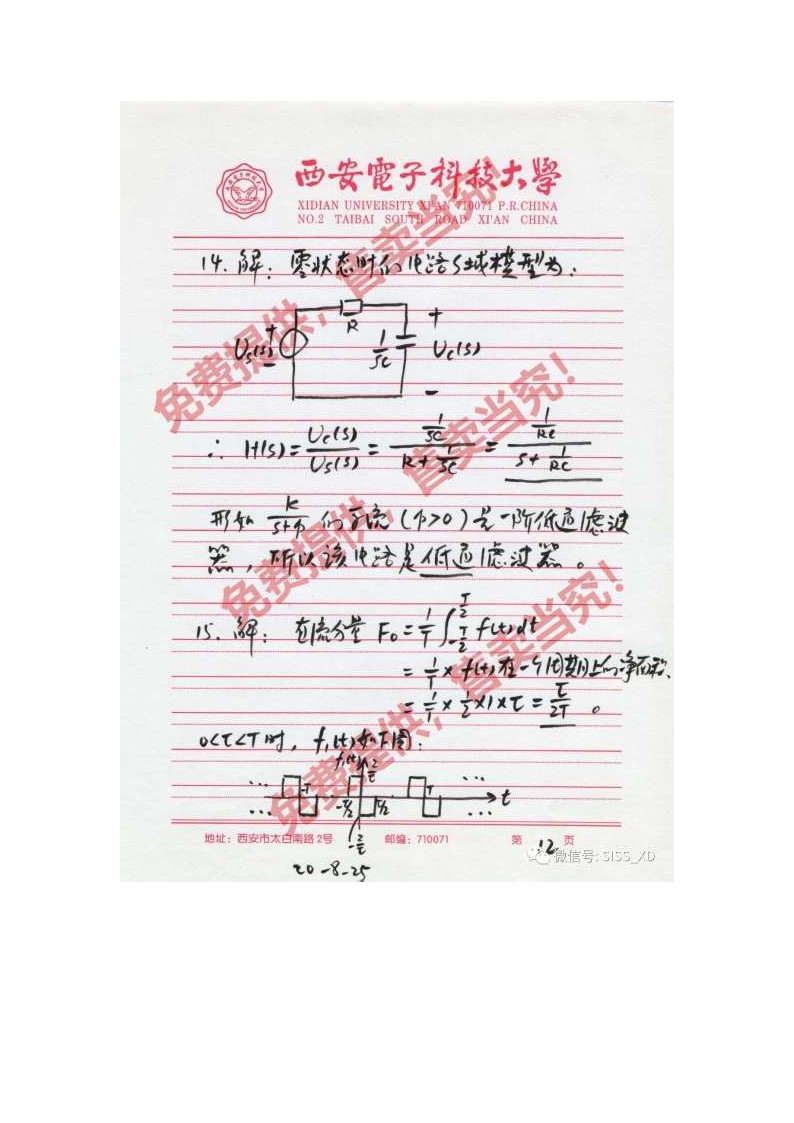 西安電子科技大學
XIDIAN UNIVERSITY XI'AN 710071 P.R.CHINA
NO.2 TAIBAI SOUTH ROAD XI'AN CHINA
14. 解：零状态时的电路S域模型为：
+ R +
Us(s) 1/sC Uc(s)
− −
∴ H(s) = Uc(s)/Us(s) = (1/sC)/(R + 1/sC) = (1/RC)/(s + 1/RC)
形如 k/(s+p) 的系统(p>0)是一阶低通滤波
器，所以该电路是低通滤波器。
15. 解：直流分量 F₀ = 1/T ∫_{-T/2}^{T/2} f(t)dt
= 1/T × f(t)在一个周期上的净面积
= 1/T × 1/2 × 1 × τ = τ/2T 。
0<τ<T时，f₁(t)如下图：
f₁(t) 2/τ
... T -τ/2 τ/2 T ... t
... -2/τ ...
免费提供，售卖当究！
免费提供，售卖当究！
免费提供，售卖当究！
地址：西安市太白南路2号 邮编：710071 第 12 页
微信号: SISS_XD
20-8-25